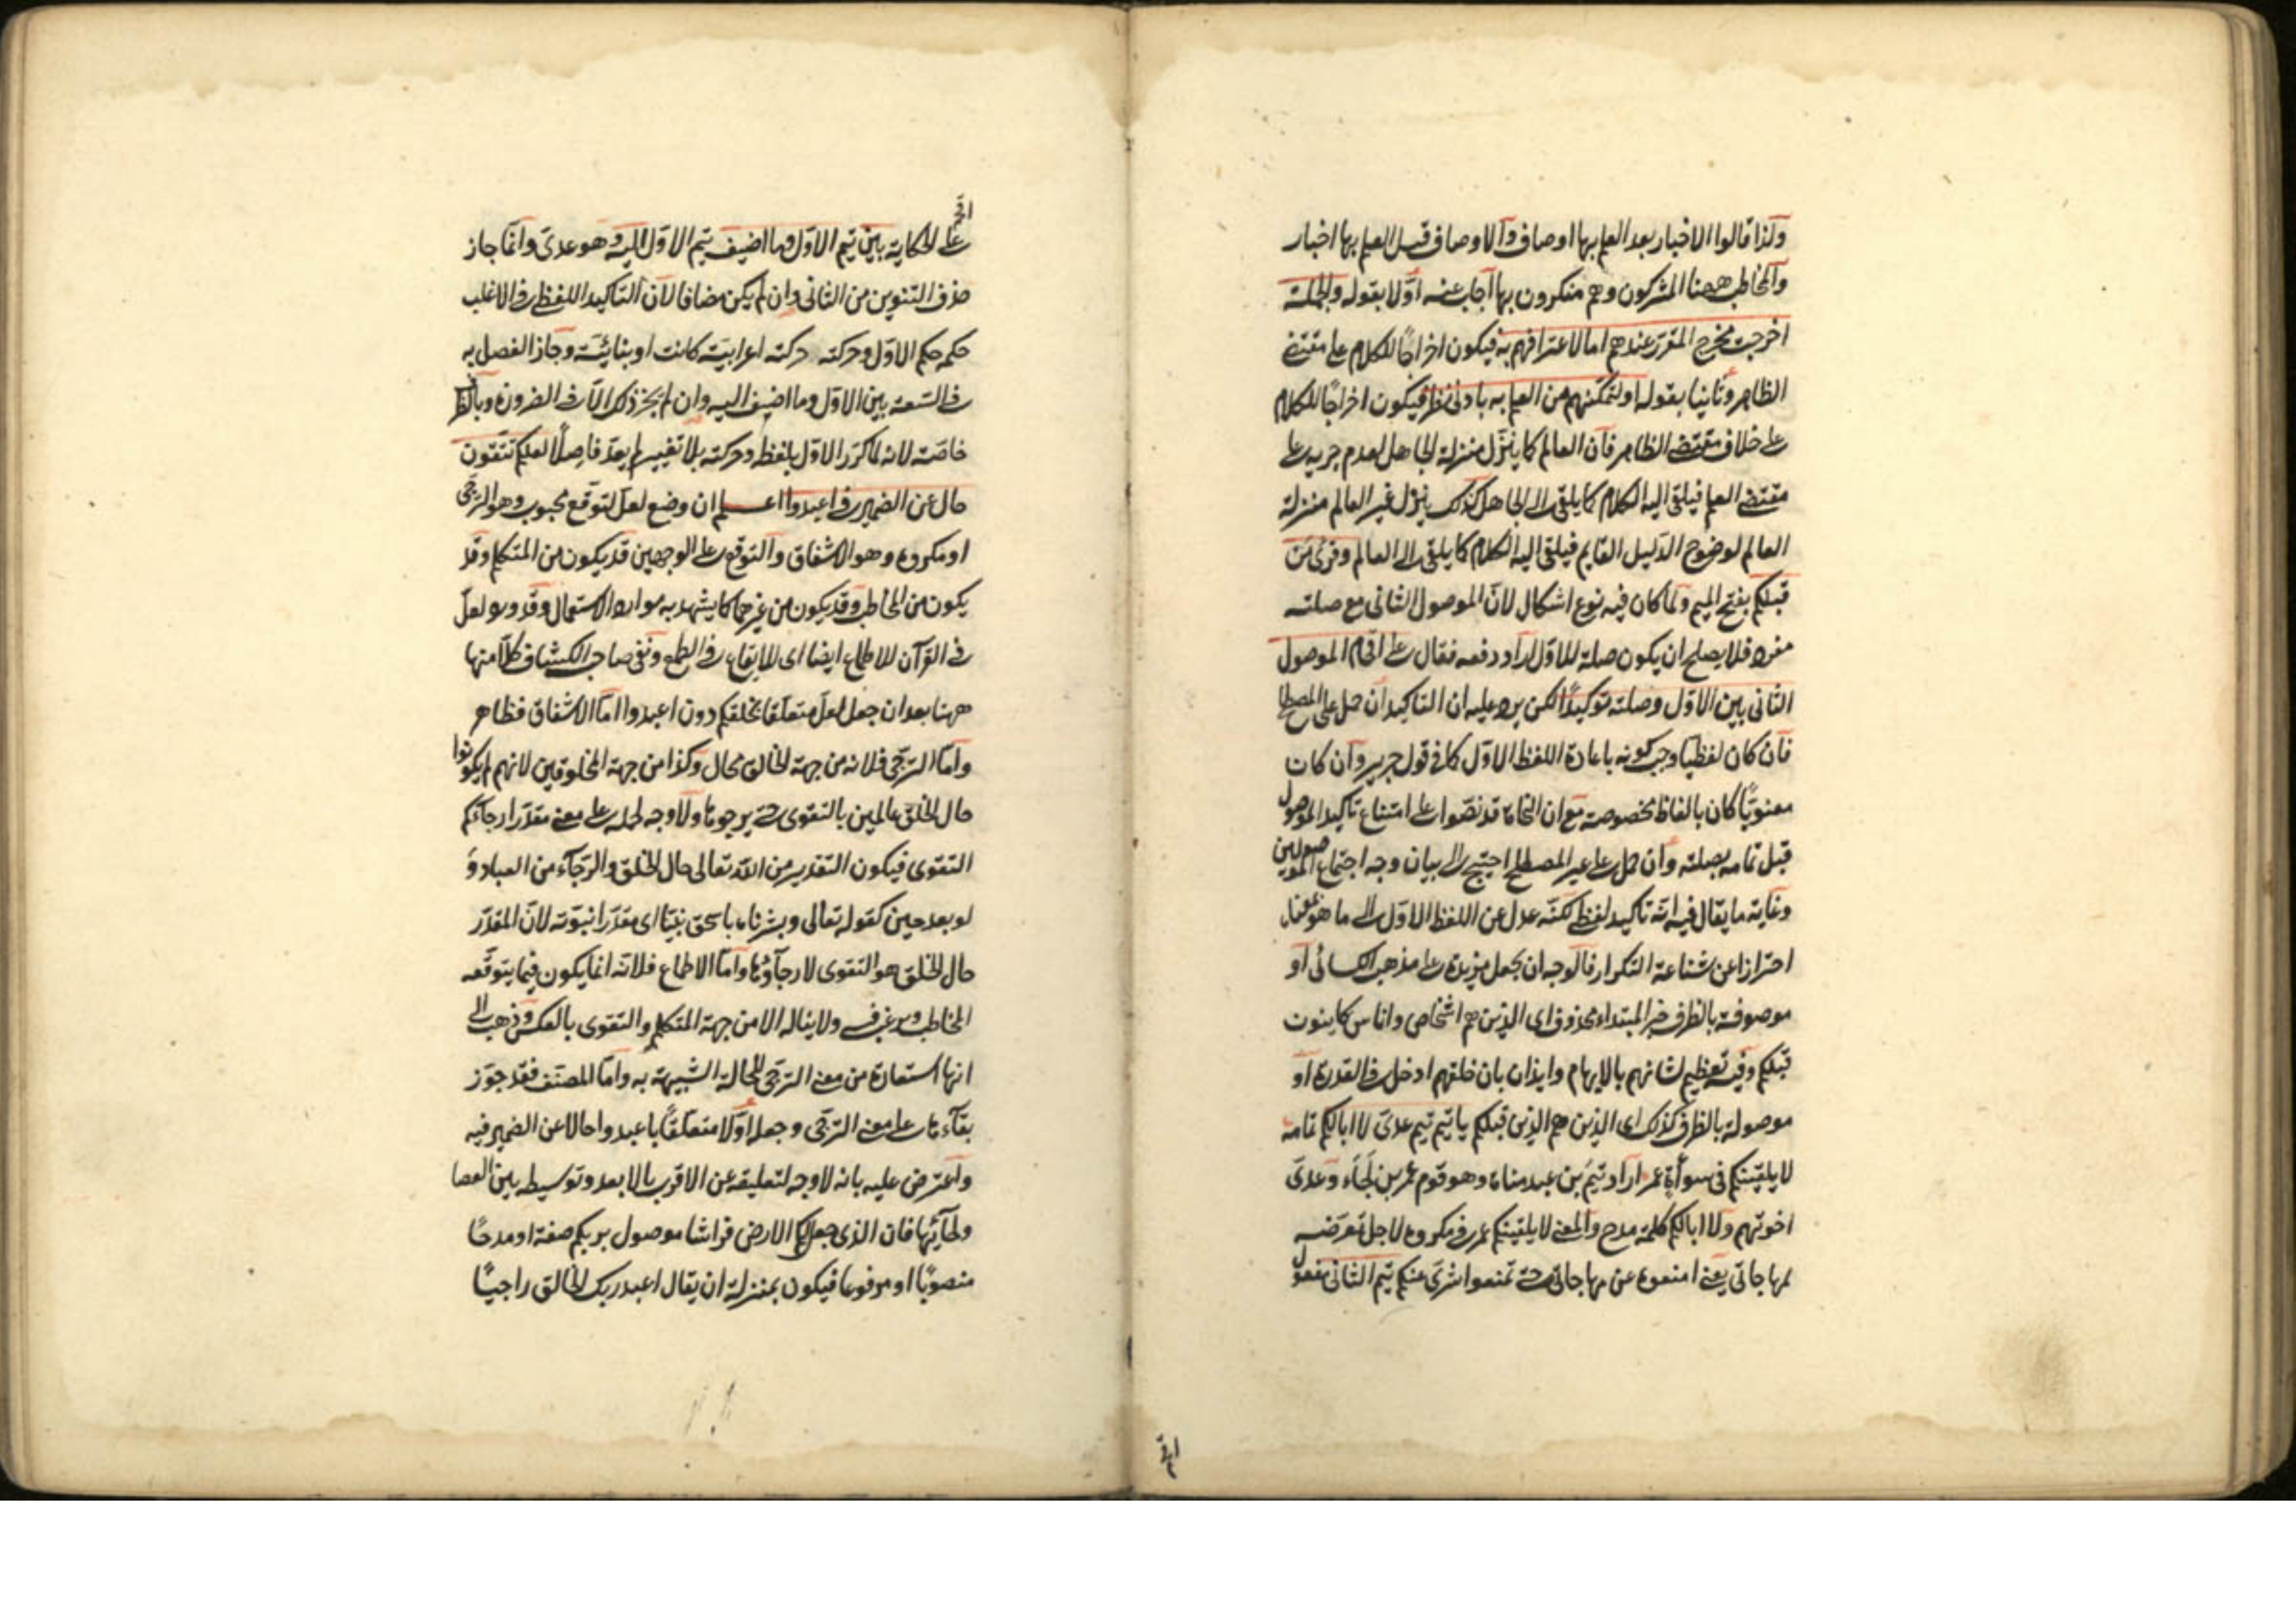 ولذا قالوا الاخبار بعد العلم بها اوصاف والاوصاف قبل العلم بها اخبار
والمخاطب ههنا المشركون وهم منكرون بها اجاب عنه اولا بقوله والجملة
اخرجت مخرج المقرر عندهم اما لاعترافهم به فيكون اخراجا للكلام على مقتضى
الظاهر وثانيا بقوله او لتمكنهم من العلم به بادنى نظر فيكون اخراجا للكلام
على خلاف مقتضى الظاهر فان العالم كما ينزل منزلة الجاهل لعدم جريه على
مقتضى العلم فيلقى اليه الكلام كما يلقى الى الجاهل كذلك ينزل غير العالم منزلة
العالم لوضوح الدليل القايم فيلقى اليه الكلام كما يلقى الى العالم وقرئ من
قبلكم بفتح الميم ولما كان فيه نوع اشكال لان الموصول الثانى مع صلته
مفرد فلا يصلح ان يكون صلة للاول اراد دفعه فقال على اقحام الموصول
الثانى بين الاول وصلته توكيدا لكن يرد عليه ان التاكيد ان حمل على المصطلح
فان كان لفظيا وجب كونه باعادة اللفظ الاول كما فى قول جرير وان كان
معنويا كان بالفاظ مخصوصة مع ان النحاة قد نصوا على امتناع تاكيد الموصول
قبل تمامه بصلته وان حمل على غير المصطلح احتيج الى بيان وجه اجتماع الموصولين
وغاية ما يقال فيه انه تاكيد لفظى لكنه عدل عن اللفظ الاول الى ما هو بمعناه
احترازا عن شناعة التكرار فالوجه ان يجعل مزيدة على مذهب الكسائى او
موصوفة بالظرف خبر المبتداء محذوف اى الذين هم اشخاص واناس كاينون
قبلكم وفيه تعظيم لشانهم بالابهام وايذان بان خلقهم ادخل فى القدرة او
موصولة بالظرف كذلك اى الذين هم الذين قبلكم يا تيم تيم عدى لا ابا لكم تمامه
لا يلقينكم فى سوأة عمر اراد تيم بن عبد مناة وهو قوم عمر بن لجاء وعدى
اخوتهم ولا ابا لكم كلمة مدح والمعنى لا يلقينكم عمر فى مكروه لاجل تعرضه
لمهاجاتى يعنى امنعوه عن مهاجاتى حتى تمنعوا شرى عنكم تيم الثانى مفعول
اقحم
اقحم
على الحكاية بين تيم الاول وما اضيف تيم الاول اليه وهو عدى وانما جاز
حذف التنوين من الثانى وان لم يكن مضافا لان التاكيد اللفظى فى الاغلب
حكمه حكم الاول وحركته حركته اعرابية كانت او بنائية وجاز الفصل به
فى السعة بين الاول وما اضيف اليه وان لم يجز ذلك الا فى الضرورة وبالظرف
خاصة لانه لما كرر الاول بلفظه وحركته بلا تغيير لم يعد فاصلا لعلكم تتقون
حال عن الضمير فى اعبدوا اعلم ان وضع لعل لتوقع محبوب وهو الترجى
او مكروه وهو الاشفاق والتوقع على الوجهين قد يكون من المتكلم وقد
يكون من المخاطب وقد يكون من غيرهما كما يشهد به موارد الاستعمال وقد ورد لعل
فى القرآن للاطماع ايضا اى للايقاع فى الطمع ونفى صاحب الكشاف كلا منها
ههنا بعد ان جعل لعل متعلقا بخلقكم دون اعبدوا اما الاشفاق فظاهر
واما الترجى فلانه من جهة الخالق محال وكذا من جهة المخلوقين لانهم لم يكونوا
حال الخلق عالمين بالتقوى حتى يرجوها ولا وجه لحمله على معنى مقدرا رجاءكم
التقوى فيكون التقدير من الله تعالى حال الخلق والرجاء من العباد و
لو بعد حين كقوله تعالى وبشرناه باسحق نبيا اى مقدرا نبوته لان المقدر
حال الخلق هو التقوى لا رجاؤها واما الاطماع فلانه انما يكون فيما يتوقعه
المخاطب ويرغب فيه ولا يناله الا من جهة المتكلم والتقوى بالعكس وذهب الى
انها استعارة من معنى الترجى للحالة الشبيهة به واما المصنف فقد جوز
بقاءها على معنى الترجى وجعله اولا متعلقا باعبدوا حالا عن الضمير فيه
واعترض عليه بانه لا وجه لتعليقه عن الاقرب بالابعد وتوسيطه بين العصا
ولحائها فان الذى جعل لكم الارض فراشا موصول بربكم صفة او مدحا
منصوبا او مرفوعا فيكون بمنزلة ان يقال اعبد ربك الخالق راجيا